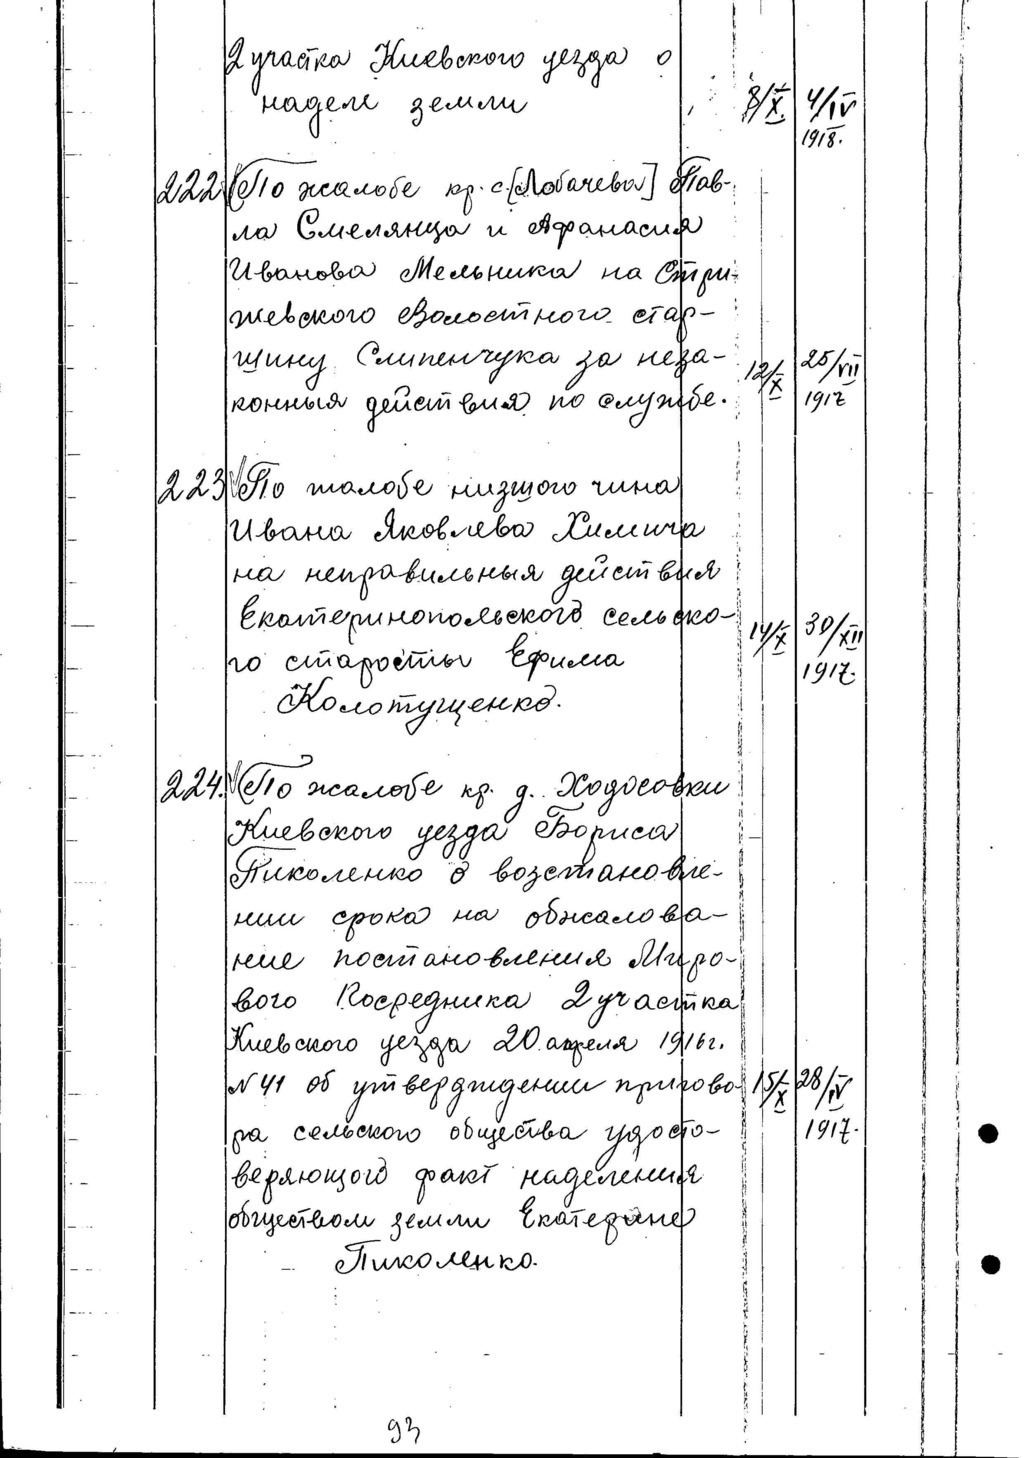 2 участка Киевского уезда о
наделе земли 8/X. 4/IV
1918.
222. По жалобе кр. с. [Лобачева] Пав-
ла Смелянца и Афанасия
Иванова Мельника на Стри-
жевского Волостного стар-
шину Слипенчука за неза- 12/X 25/VII
конныя действия по службе. 1917
223 По жалобе низшого чина
Ивана Яковлева Химича
на неправильныя действия
Екатеринопольского сельско- 14/X 30/XII
го старосты Ефима 1917.
Колотущенко.
224. По жалобе кр. д. Ходосовки
Киевского уезда Бориса
Пиколенко о возстановле-
нии срока на обжалова-
ние постановления Миро-
вого Посредника 2 участка
Киевского уезда 20 апреля 1916 г.
№ 41 об утверждении пригово- 15/X 28/IV
ра сельского общества удосто- 1917.
веряющого факт наделения
обществом земли Екатерине
Пиколенко.
93